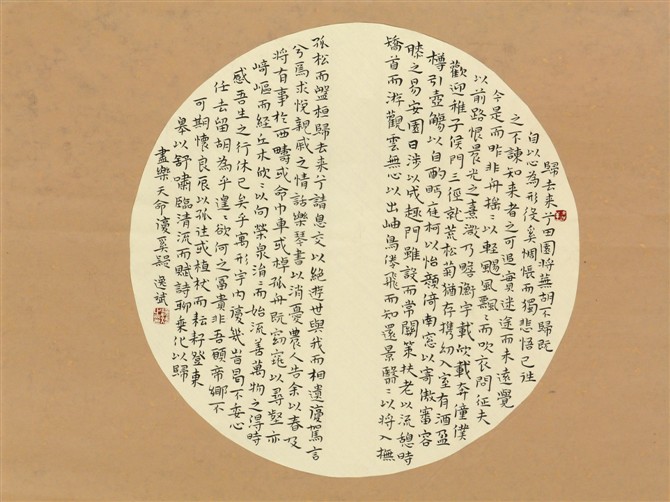 歸去来兮田園將蕪胡不歸既
自以心為形役奚惆悵而獨悲悟已往
之不諫知来者之可追實迷途而未遠覺
今是而昨非舟摇:以輕颺風飄:而吹衣問征夫
以前路恨晨光之熹微乃瞻衡宇載欣載奔僮僕
歡迎稚子侯門三徑就荒松菊猶存攜幼入室有酒盈
樽引壺觴以自酌眄庭柯以怡顏倚南窓以寄傲審容
膝之易安園日涉以成趣門雖設而常關策扶老以流憩時
矯首而游觀雲無心以出岫鳥倦飛而知還景翳:以將入撫
孤松而盤桓歸去来兮請息交以絶遊世與我而相遺復駕言
兮焉求悅親戚之情話樂琴書以消憂農人告余以春及
将有事於西疇或命巾車或棹孤舟既窈窕以尋壑亦
崎嶇而経丘木欣:以向榮泉涓:而始流善萬物之得時
感吾生之行休已矣乎寓形宇内復幾旹曷不委心
任去留胡為乎遑:欲何之富貴非吾願帝鄉不
可期懷良辰以孤往或植杖而耘耔登東
皋以舒嘯臨清流而賦詩聊乘化以歸
盡樂天命復奚疑 逸斌